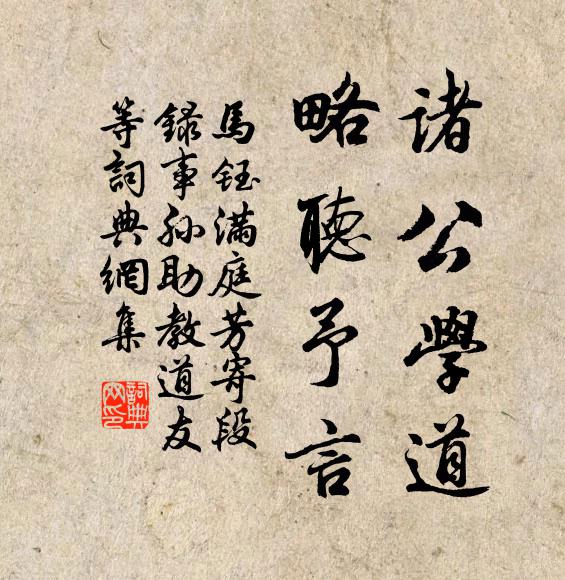 諸公學道
略聽予言
馬鈺滿庭芳寄段
錄事孙助教道友
等詞典網集
詞典
网印